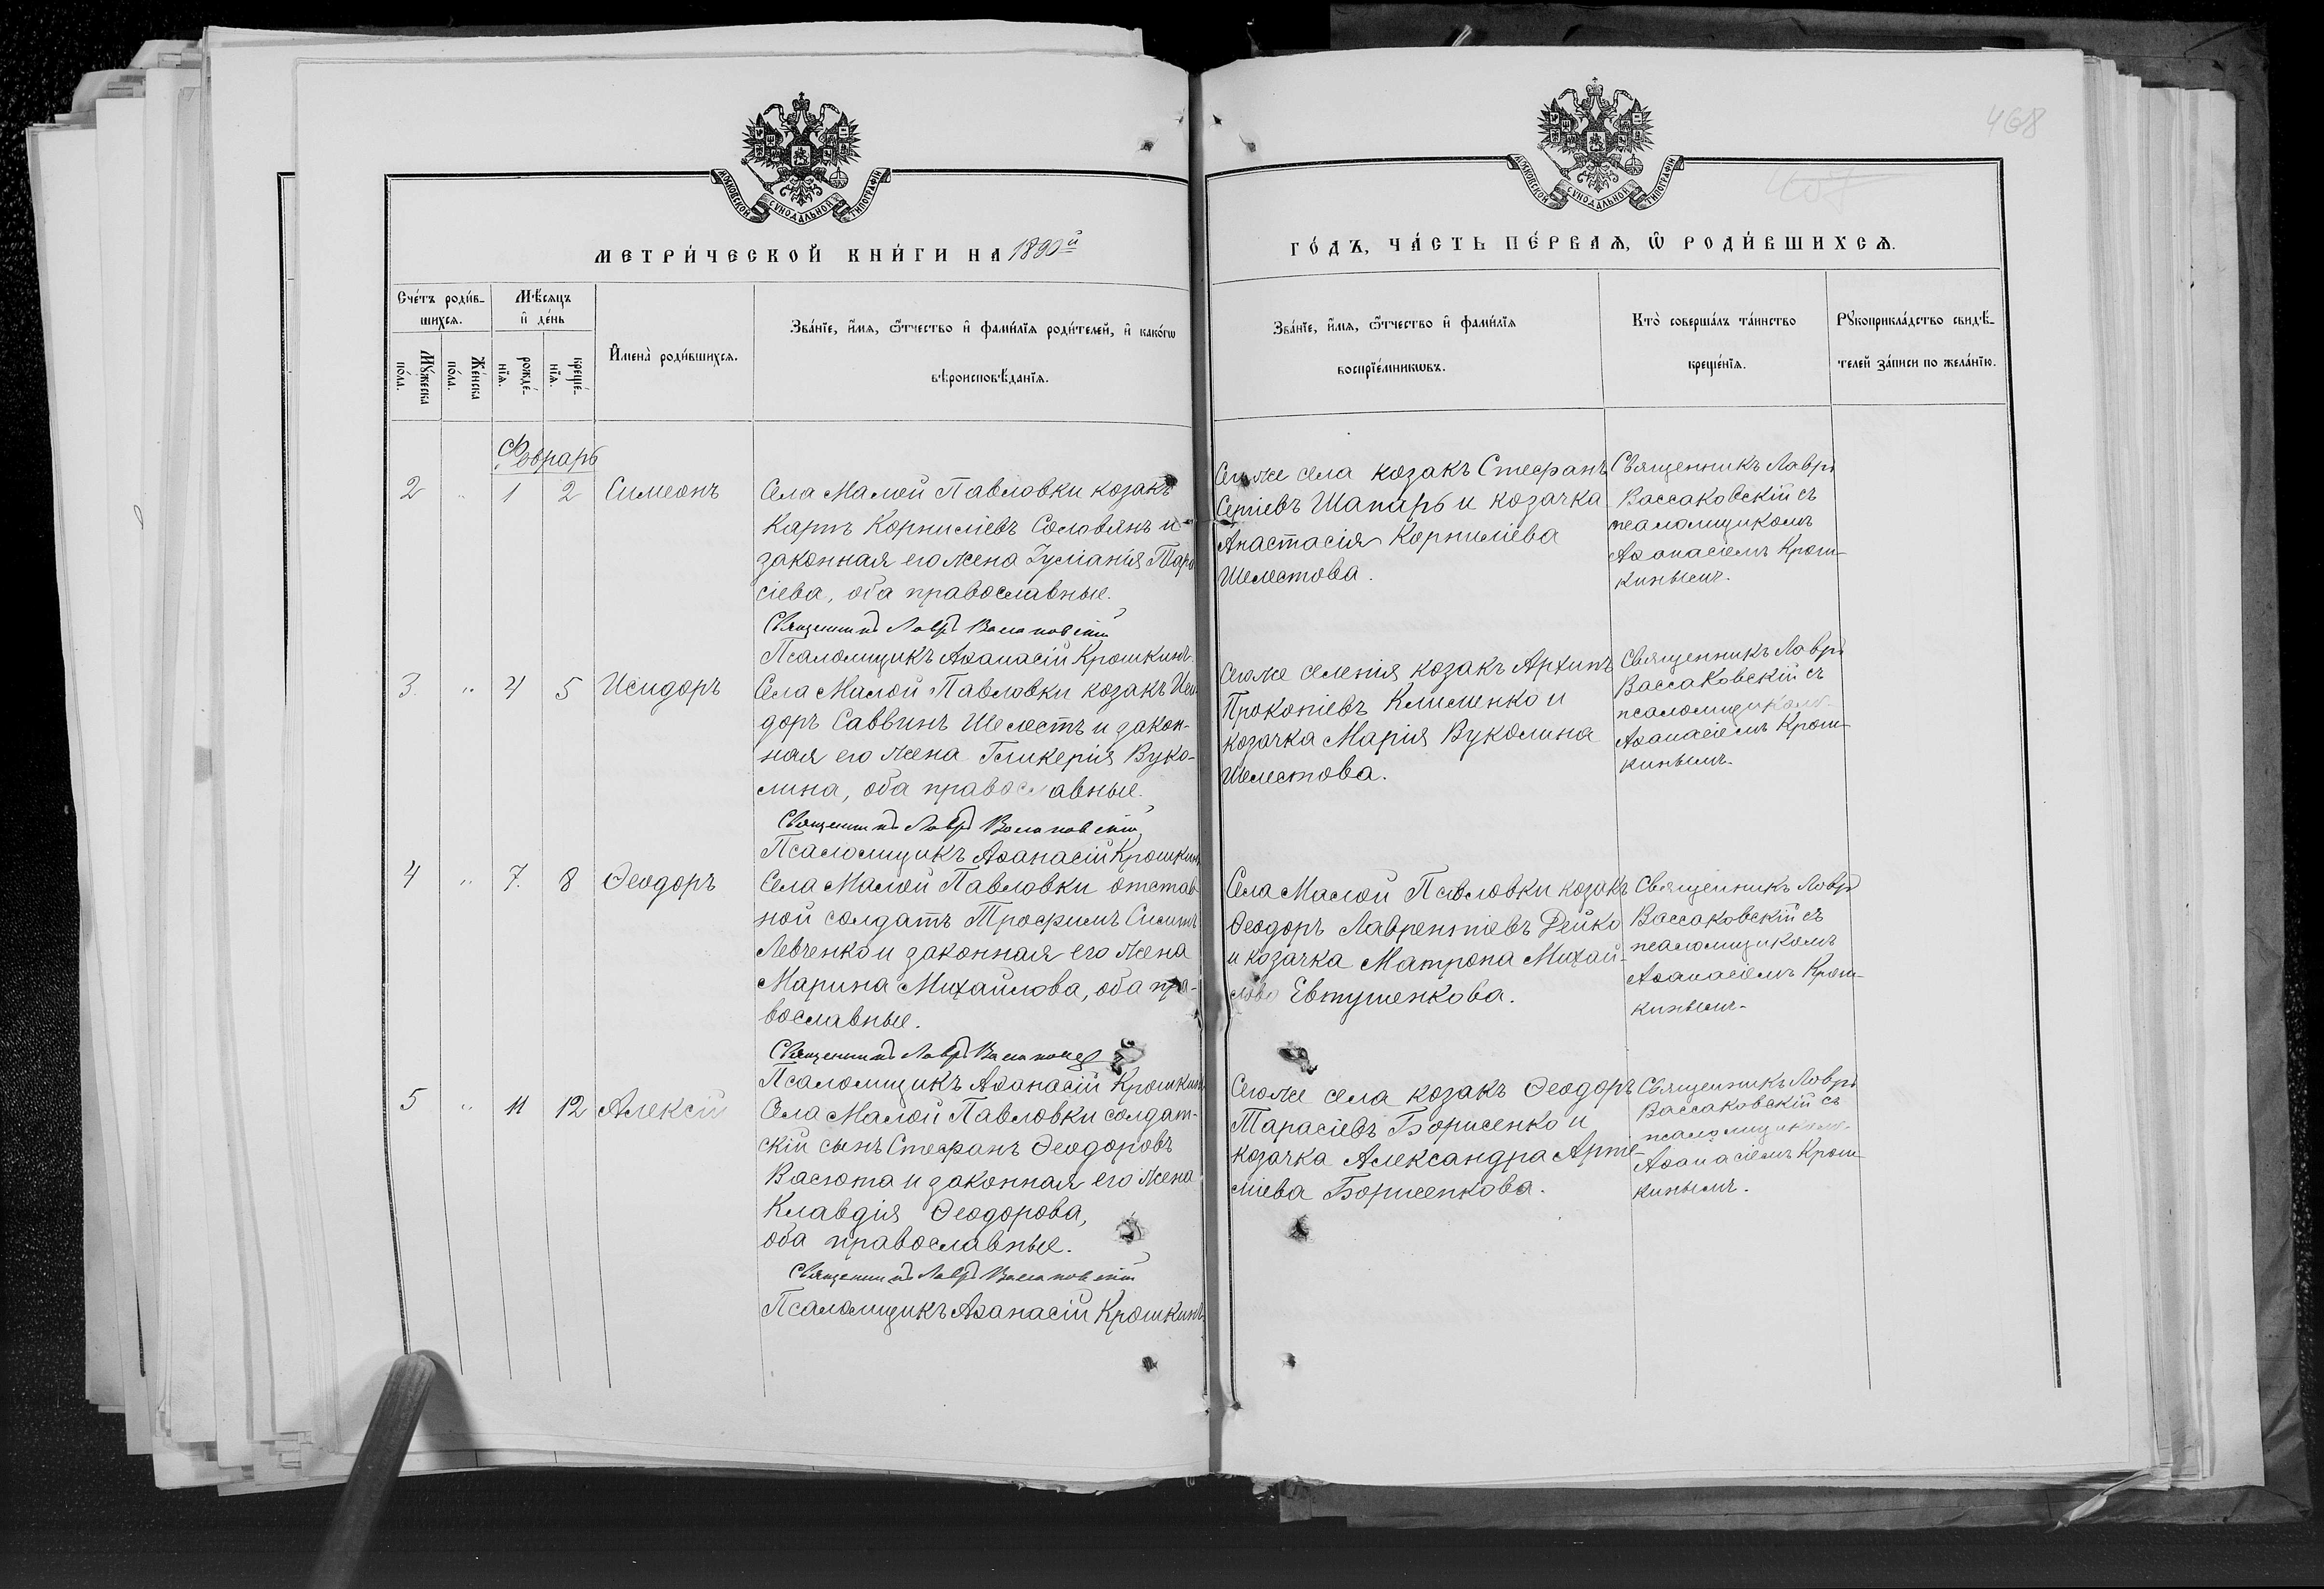 468
МОСКОВСКОЙ СѴНОДАЛЬНОЙ ТИПОГРАФІИ
МОСКОВСКОЙ СѴНОДАЛЬНОЙ ТИПОГРАФІИ
МЕТРИ́ЧЕСКОЙ КНИ́ГИ НА 1890й
ГО́ДЪ, ЧА́СТЬ ПЕ́РВАѦ, Ѡ҆ РОДИ́ВШИХСѦ.
Сче́тъ роди́в-
шихсѧ.
Мѣ́сѧцъ
и҆ де́нь
Мꙋ́жеска
по́ла.
Же́нска
по́ла.
рожде́-
нїѧ.
креще́-
нїѧ.
И҆мена̀ роди́вшихсѧ.
Зва́нїе, и҆́мѧ, ѻ҆́тчество и҆ фами́лїѧ роди́телей, и҆ како́гѡ
вѣроисповѣ́данїѧ.
Зва́нїе, и҆́мѧ, ѻ҆́тчество и҆ фами́лїѧ
воспрїе́мникѡвъ.
Кто̀ соверша́лъ та́инство
креще́нїѧ.
Рꙋкоприкла́дство свидѣ́-
телей за́писи по жела́нїю.
Февраръ
2 " 1 2 Симеонъ
Села Малой Павловки козакъ
Карпъ Корниліевъ Соловянъ и
законная его жена Іуліанія Тара
сіева, оба православные.
Священникъ Лавръ Вассаковскій
Псаломщикъ Аѳанасій Крошкинъ
Сегоже села козакъ Стефанъ
Сергіевъ Шапаръ и козачка
Анастасія Корниліева
Шелестова.
Священникъ Лавръ
Вассаковскій съ
псаломщикомъ
Аѳанасіемъ Крош-
кинымъ.
3. " 4 5 Исидоръ
Села Малой Павловки козакъ Иси
доръ Саввинъ Шелестъ и закон-
ная его жена Гликерія Вуко-
лина, оба православные.
Священникъ Лавръ Вассаковскій
Псаломщикъ Аѳанасій Крошкинъ
Сегоже селенія козакъ Архипъ
Прокопіевъ Клименко и
козачка Марія Вуколина
Шелестова.
Священникъ Лавръ
Вассаковскій съ
псаломщикомъ
Аѳанасіемъ Крош-
кинымъ.
4 " 7. 8 Ѳеодоръ
Села Малой Павловки отстав
ной солдатъ Трофимъ
Левченко и законная его жена
Марина Михайлова, оба пра-
вославные.
Священникъ Лавръ
Псаломщикъ Аѳанасій Крошкинъ
Села Малой Павловки козакъ
Ѳеодоръ Лаврентіевъ Рейко
и козачка Матрона Михай-
лова Евтушенкова.
Священникъ Лавръ
Вассаковскій съ
псаломщикомъ
Аѳанасіемъ Крош-
кинымъ.
5 " 11 12 Алексій
Села Малой Павловки солдат-
скій сынъ Стефанъ Ѳеодоровъ
Васюта и законная его жена
Клавдія Ѳеодорова,
оба православные.
Священникъ Лавръ Вассаковскій
Псаломщикъ Аѳанасій Крошкинъ
Сегоже села козакъ Ѳеодоръ
Тарасіевъ Борисенко и
козачка Александра Арте-
міева Борисенкова.
Священникъ Лавръ
Вассаковскій съ
псаломщикомъ
Аѳанасіемъ Крош-
кинымъ.